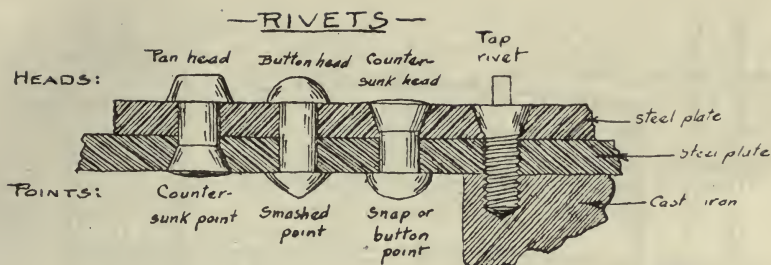 —RIVETS—
Pan head
Button head
Counter-
sunk head
Tap
rivet
HEADS:
steel plate
steel plate
POINTS:
Counter-
sunk point
Smashed
point
Snap or
button point
Cast iron